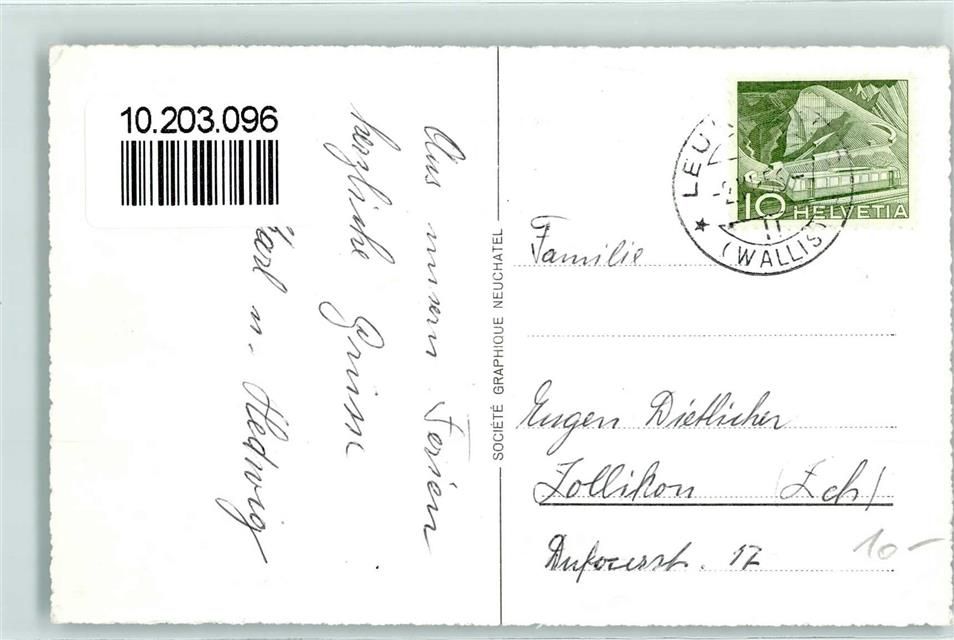 10.203.096
Aus unsern Ferien
herzliche Grüsse
Karl u. Hedwig
SOCIÉTÉ GRAPHIQUE NEUCHATEL
LEU
(WALLIS)
10 HELVETIA
Familie
Eugen Dietlicher
Zollikon (Zch)
Dufourstr. 17
10-